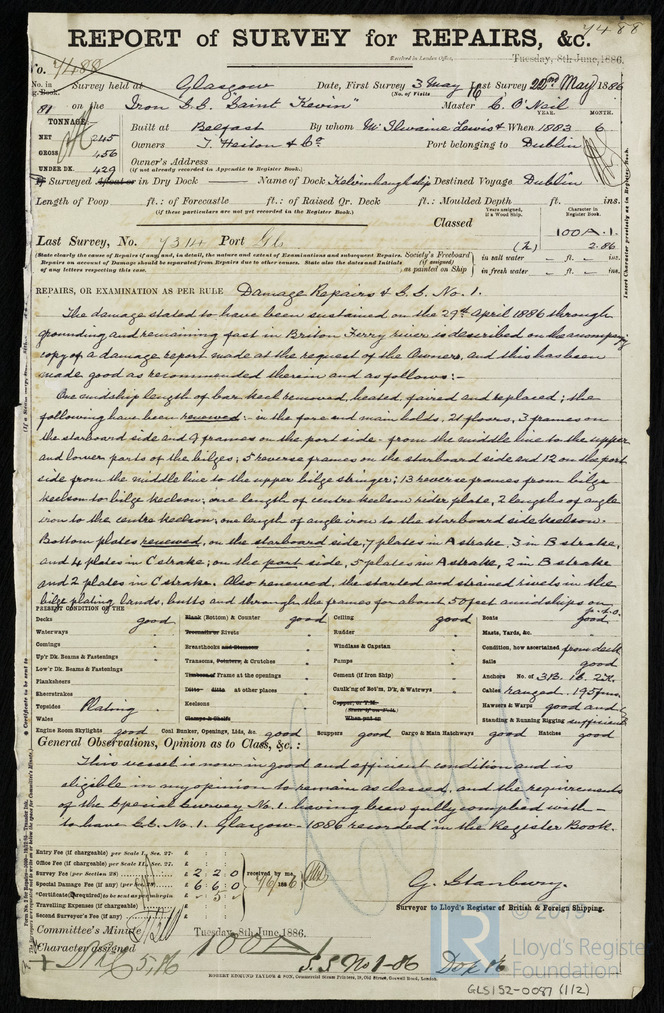 7488
REPORT of SURVEY for REPAIRS, &c.
Received in London Office, Tuesday, 8th June, 1886.
No. 7488
No. in Reg. Book. Survey held at Glasgow Date, First Survey 3 May Last Survey 22nd May 1886
(No. of Visits 16)
81 on the Iron S.S. "Saint Kevin" Master C. O'Neil
TONNAGE YEAR. MONTH.
Built at Belfast By whom McIlwaine Lewis & When 1883 6
NET 245
Owners T. Heiton & Co. Port belonging to Dublin
GROSS 456
Owner's Address
UNDER DK. 429
(if not already recorded in Appendix to Register Book.)
If Surveyed Afloat or in Dry Dock Name of Dock Kelvinhaugh slip Destined Voyage Dublin
Length of Poop ft.: of Forecastle ft.: of Raised Qr. Deck ft.: Moulded Depth ft. ins.
(if these particulars are not yet recorded in the Register Book.)
Years assigned, if a Wood Ship. Character in Register Book.
Classed 100A.1.
Last Survey, No. 7314 Port Gls 2.86
(State clearly the cause of Repairs if any; and, in detail, the nature and extent of Examinations and subsequent Repairs. Society's Freeboard in salt water ft. ins.
Repairs on account of Damage should be separated from Repairs due to other causes. State also the dates and Initials (if assigned)
of any letters respecting this case. as painted on Ship in fresh water ft. ins.
REPAIRS, OR EXAMINATION AS PER RULE Damage Repairs & S.S. No. 1.
The damage stated to have been sustained on the 29th April 1886 through
grounding and remaining fast in Briton Ferry river is described on the accompanying
copy of a damage report made at the request of the Owners, and this has been
made good as recommended therein and as follows:-
One midship length of bar keel removed, heated, faired and replaced; the
following have been renewed:- in the fore and main holds, 21 floors, 3 frames on
the starboard side and 4 frames on the port side - from the middle line to the upper
and lower parts of the bilges; 5 reverse frames on the starboard side and 12 on the port
side from the middle line to the upper bilge stringer; 13 reverse frames from bilge
keelson to bilge keelson; one length of centre keelson rider plate, 2 lengths of angle
iron to the centre keelson, one length of angle iron to the starboard side keelson.
Bottom plates renewed, on the starboard side, 7 plates in A strake, 3 in B strake,
and 4 plates in C strake; on the port side, 5 plates in A strake, 2 in B strake
and 2 plates in C strake. Also renewed, the started and strained rivets in the
bilge plating, lands, butts and through the frames for about 50 feet amidships on
p.t.o.
PRESENT CONDITION OF THE
Decks good Blank (Bottom) & Counter good Ceiling good Boats good
Waterways Treenails or Rivets Rudder Masts, Yards, &c.
Comings Breasthooks and Stemson Windlass & Capstan Condition, how ascertained from deck
Up'r Dk. Beams & Fastenings Transoms, Pointers, & Crutches Pumps Sails good
Low'r Dk. Beams & Fastenings Timbers of Frame at the openings Cement (if Iron Ship) Anchors No. of 3B. 1S. 2K.
Planksheers Ditto ditto at other places Caulk'ng of Bot'm, D'k, & Waterways Cables ranged. 195 fms.
Sheerstrakes Keelsons Copper, or Y.M. Hawsers & Warps good and
Topsides Plating Clamps & Shelfs When put on Standing & Running Rigging sufficient
Wales
Engine Room Skylights good Coal Bunker, Openings, Lids, &c. good Scuppers good Cargo & Main Hatchways good Hatches good
General Observations, Opinion as to Class, &c.:
This vessel is now in good and efficient condition and is
eligible in my opinion to remain as classed, and the requirements
of the Special Survey No. 1. having been fully complied with -
to have S.S. No. 1. Glasgow - 1886 recorded in the Register Book.
Entry Fee (if chargeable) per Scale I., Sec. 27. £
Office Fee (if chargeable) per Scale II., Sec. 27. £
Survey Fee (per Section 28) £ 2 2 0 received by me,
Special Damage Fee (if any) (per Sec. 28) £ 6 6 0 7/6/1886
*Certificate (if required) to be sent as per margin £ - 5 -
Travelling Expenses (if chargeable) £
Second Surveyor's Fee (if any) £
G. Stanbury.
Surveyor to Lloyd's Register of British & Foreign Shipping.
Committee's Minute Tuesday, 8th June, 1886.
Character assigned 100A1
S.S. No 1-86
5,86
ROBERT EDMUND TAYLOR & SON, Commercial Steam Printers, 19, Old Street, Goswell Road, London.
Lloyd's Register
Foundation
GLS152-0087 (1/2)